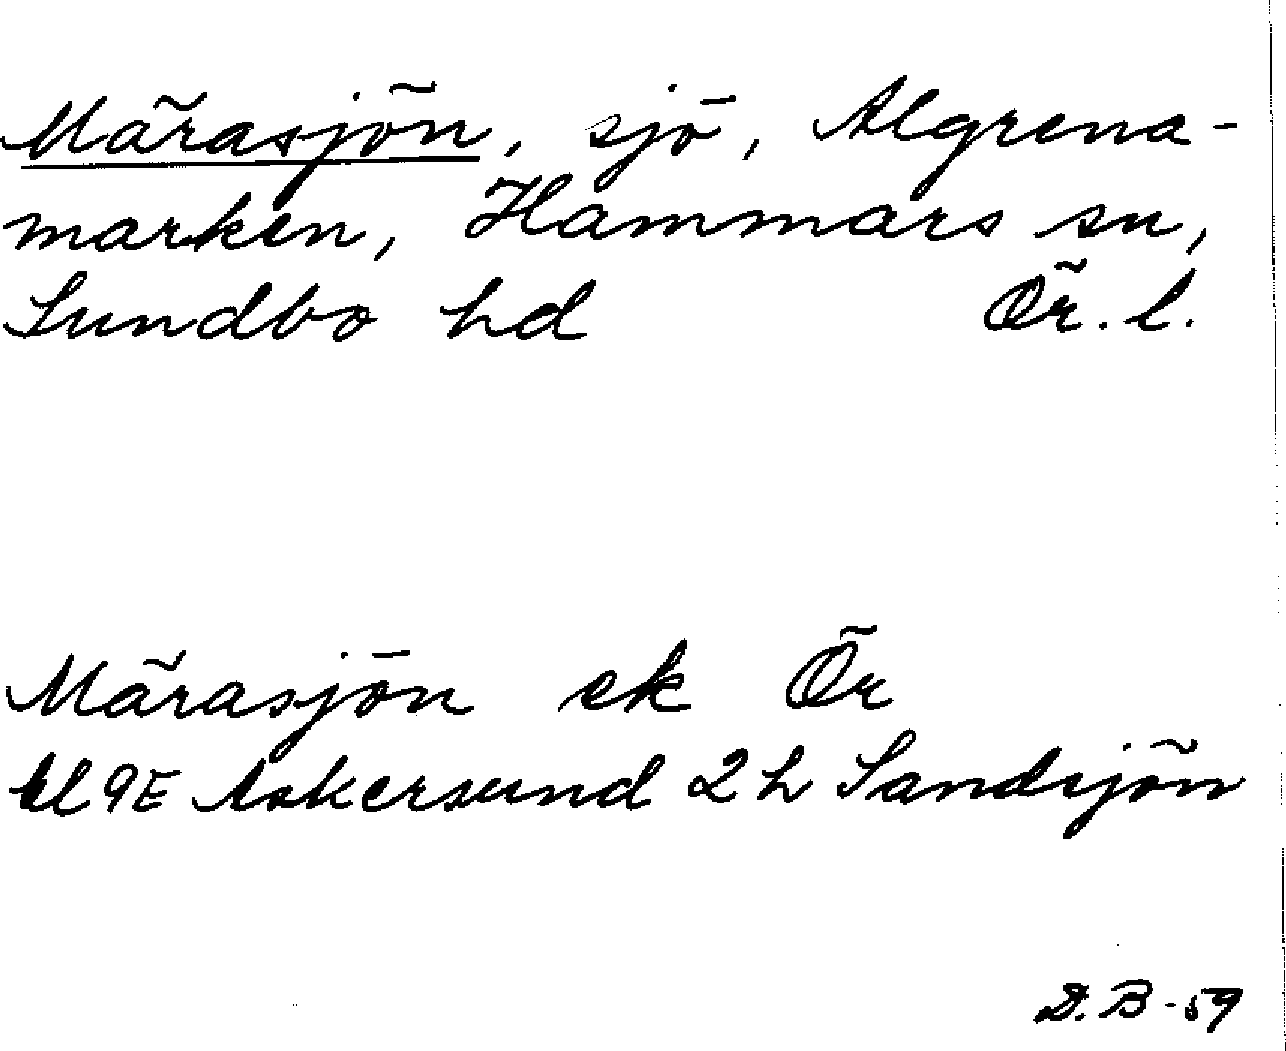 Märasjön, sjö, Algrena-
marken, Hammars sn,
Sundbo hd Ör. l.
Märasjön ek Ör
bl 9E Askersund 2 h Sandsjön
D. B-59